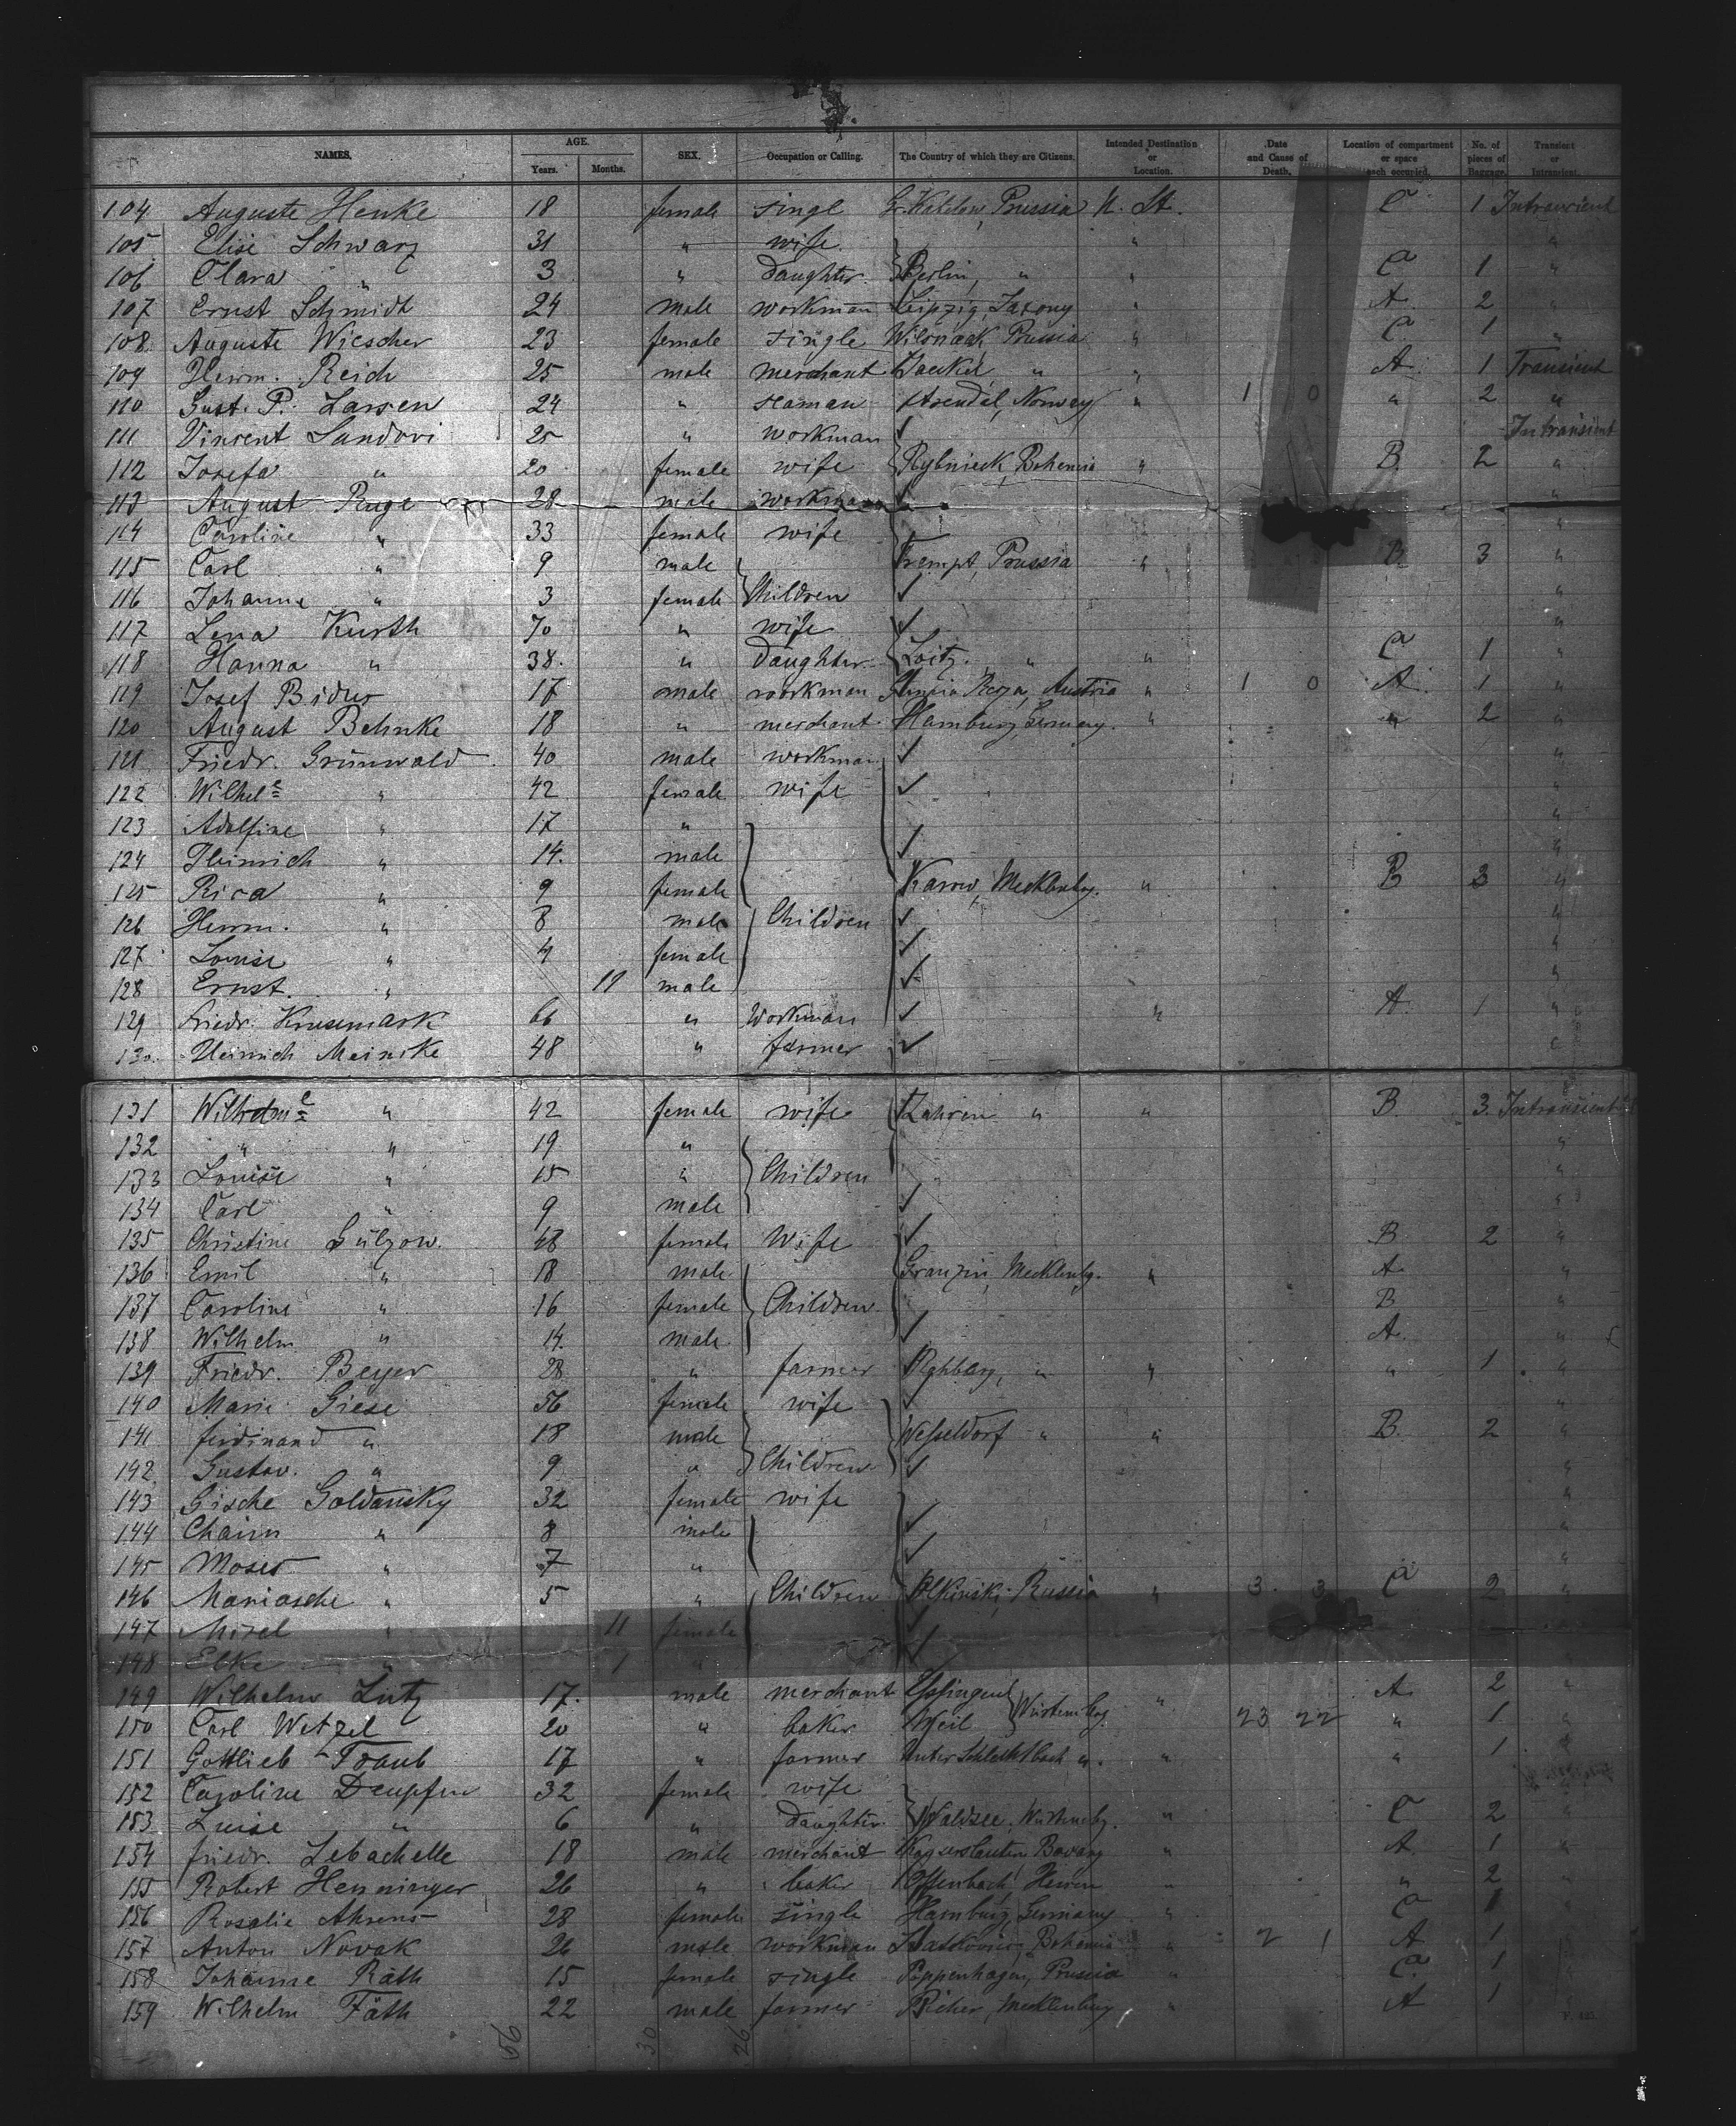 NAMES. AGE. Years. Months. SEX. Occupation or Calling. The Country of which they are Citizens. Intended Destination or Location. Date and Cause of Death. Location of compartment or space each occupied. No. of pieces of Baggage. Transient or Intransient.
104 Auguste Henke 18 female singl Prussia N. St. C 1 Intransient
105 Elise Schwarz 31 " wife " "
106 Clara " 3 " Daughter Berlin, " " C 1 "
107 Ernst Schmidt 24 male workman Leipzig, Saxony " A. 2 "
108 Auguste Wiescher 23 female single Wilsnack Prussia " C 1 "
109 Herm. Reich 25 male merchant " " A. 1 Transient
110 Gust. P. Larsen 24 " seaman Arendal, Norway " 1 0 " 2 "
111 Vincent Sandovi 25 " workman Intransient
112 Josefa " 20 female wife Bohemia " B. 2 "
113 August Ruge 28 male workman "
114 Caroline " 33 female wife "
115 Carl " 9 male Trempt, Prussia " B. 3 "
116 Johanna " 3 female Children "
117 Lena Kurth 70 " wife "
118 Hanna " 38. " Daughter Loitz. " " C 1 "
119 Josef 17 male workman Austria " 1 0 A. 1 "
120 August Behnke 18 " merchant Hamburg, Germany. " " 2 "
121 Friedr. Grünwald 40 male workman "
122 Wilhel⁼ᵉ " 42 female wife "
123 Adolfine " 17 " "
124 Heinrich " 14. male "
125 Rica " 9 female Karow, Mecklenbg. " B 3 "
126 Herm. " 8 male Children "
127 Louise " 4 female "
128 Ernst. " 11 male "
129 Friedr. Krusemark 66 " Workman " A. 1 "
130. Heinrich Meincke 48 " farmer "
131 Wilhelm⁼ᵉ " 42 female wife " " B. 3. Intransient
132 " " 19 " "
133 Louise " 15 " Children "
134 Carl " 9 male "
135 Christine Sülzow. 48 female Wife B 2 "
136 Emil " 18 male Granzin, Mecklenbg. " A. "
137 Caroline " 16 female Children B "
138 Wilhelm " 14. male A. "
139 Friedr. Beyer 28 " farmer " " " 1 "
140 Marie Giese 56 female wife "
141 Ferdinand " 18 male Wesseldorf " " B. 2 "
142 Gustav. " 9 " Children "
143 Gische Goldansky 32 female wife "
144 Chaim " 8 male "
145 Moses " 7 " "
146 Mariasche " 5 " Children Russia " 3 3 C 2 "
147 Mirel " 11 female
148 Elke " 1 "
149 Wilhelm Lutz 17. male merchant A. 2 "
150 Carl Wetzel 20 " baker Weil Würtembg. " 23 22 " 1 "
151 Gottlieb Traub 17 " farmer Unter Schlechtbach " " " 1
152 Caroline 32 female wife
153 Luise " 6 " Daughter Waldsee, Würtembg. " C 2 "
154 Friedr. Lebachelle 18 male merchant Kayserslautern Bavary " A. 1 "
155 Robert Henninger 26 " baker Offenbach, Hessen " " 2 "
156 Rosalie Ahrens 28 female single Hamburg, Germany " C 1 "
157 Anton Novak 26 male workman Bohemia " 2 1 A 1 "
158 Johanne Räth 15 female single Poppenhagen, Prussia " C 1
159 Wilhelm Fäth 22 male farmer Mecklenburg " A 1
56 30 26